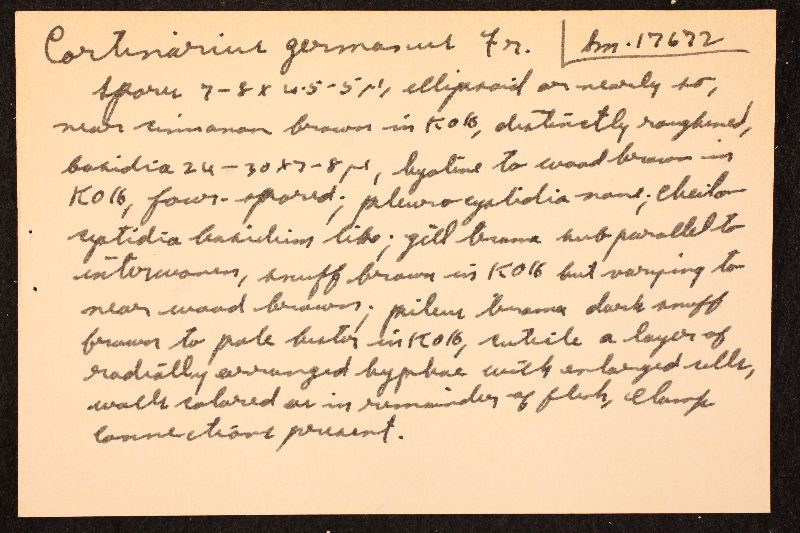 Cortinarius germanus Fr. Sm. 17672
Spores 7-8 x 4.5-5 µ, ellipsoid or nearly so,
near cinnamon brown in KOH, distinctly roughened,
basidia 24-30x7-8 µ, hyaline to wood brown in
KOH, four-spored; pleurocystidia none; cheilo
cystidia basidium like; gill trama subparallel to
interwoven, snuff brown in KOH but varying to
near wood brown; pileus trama dark snuff
brown to pale bister in KOH, cuticle a layer of
radially arranged hyphae with enlarged cells,
walls colored as in remainder of flesh, clamp
connections present.